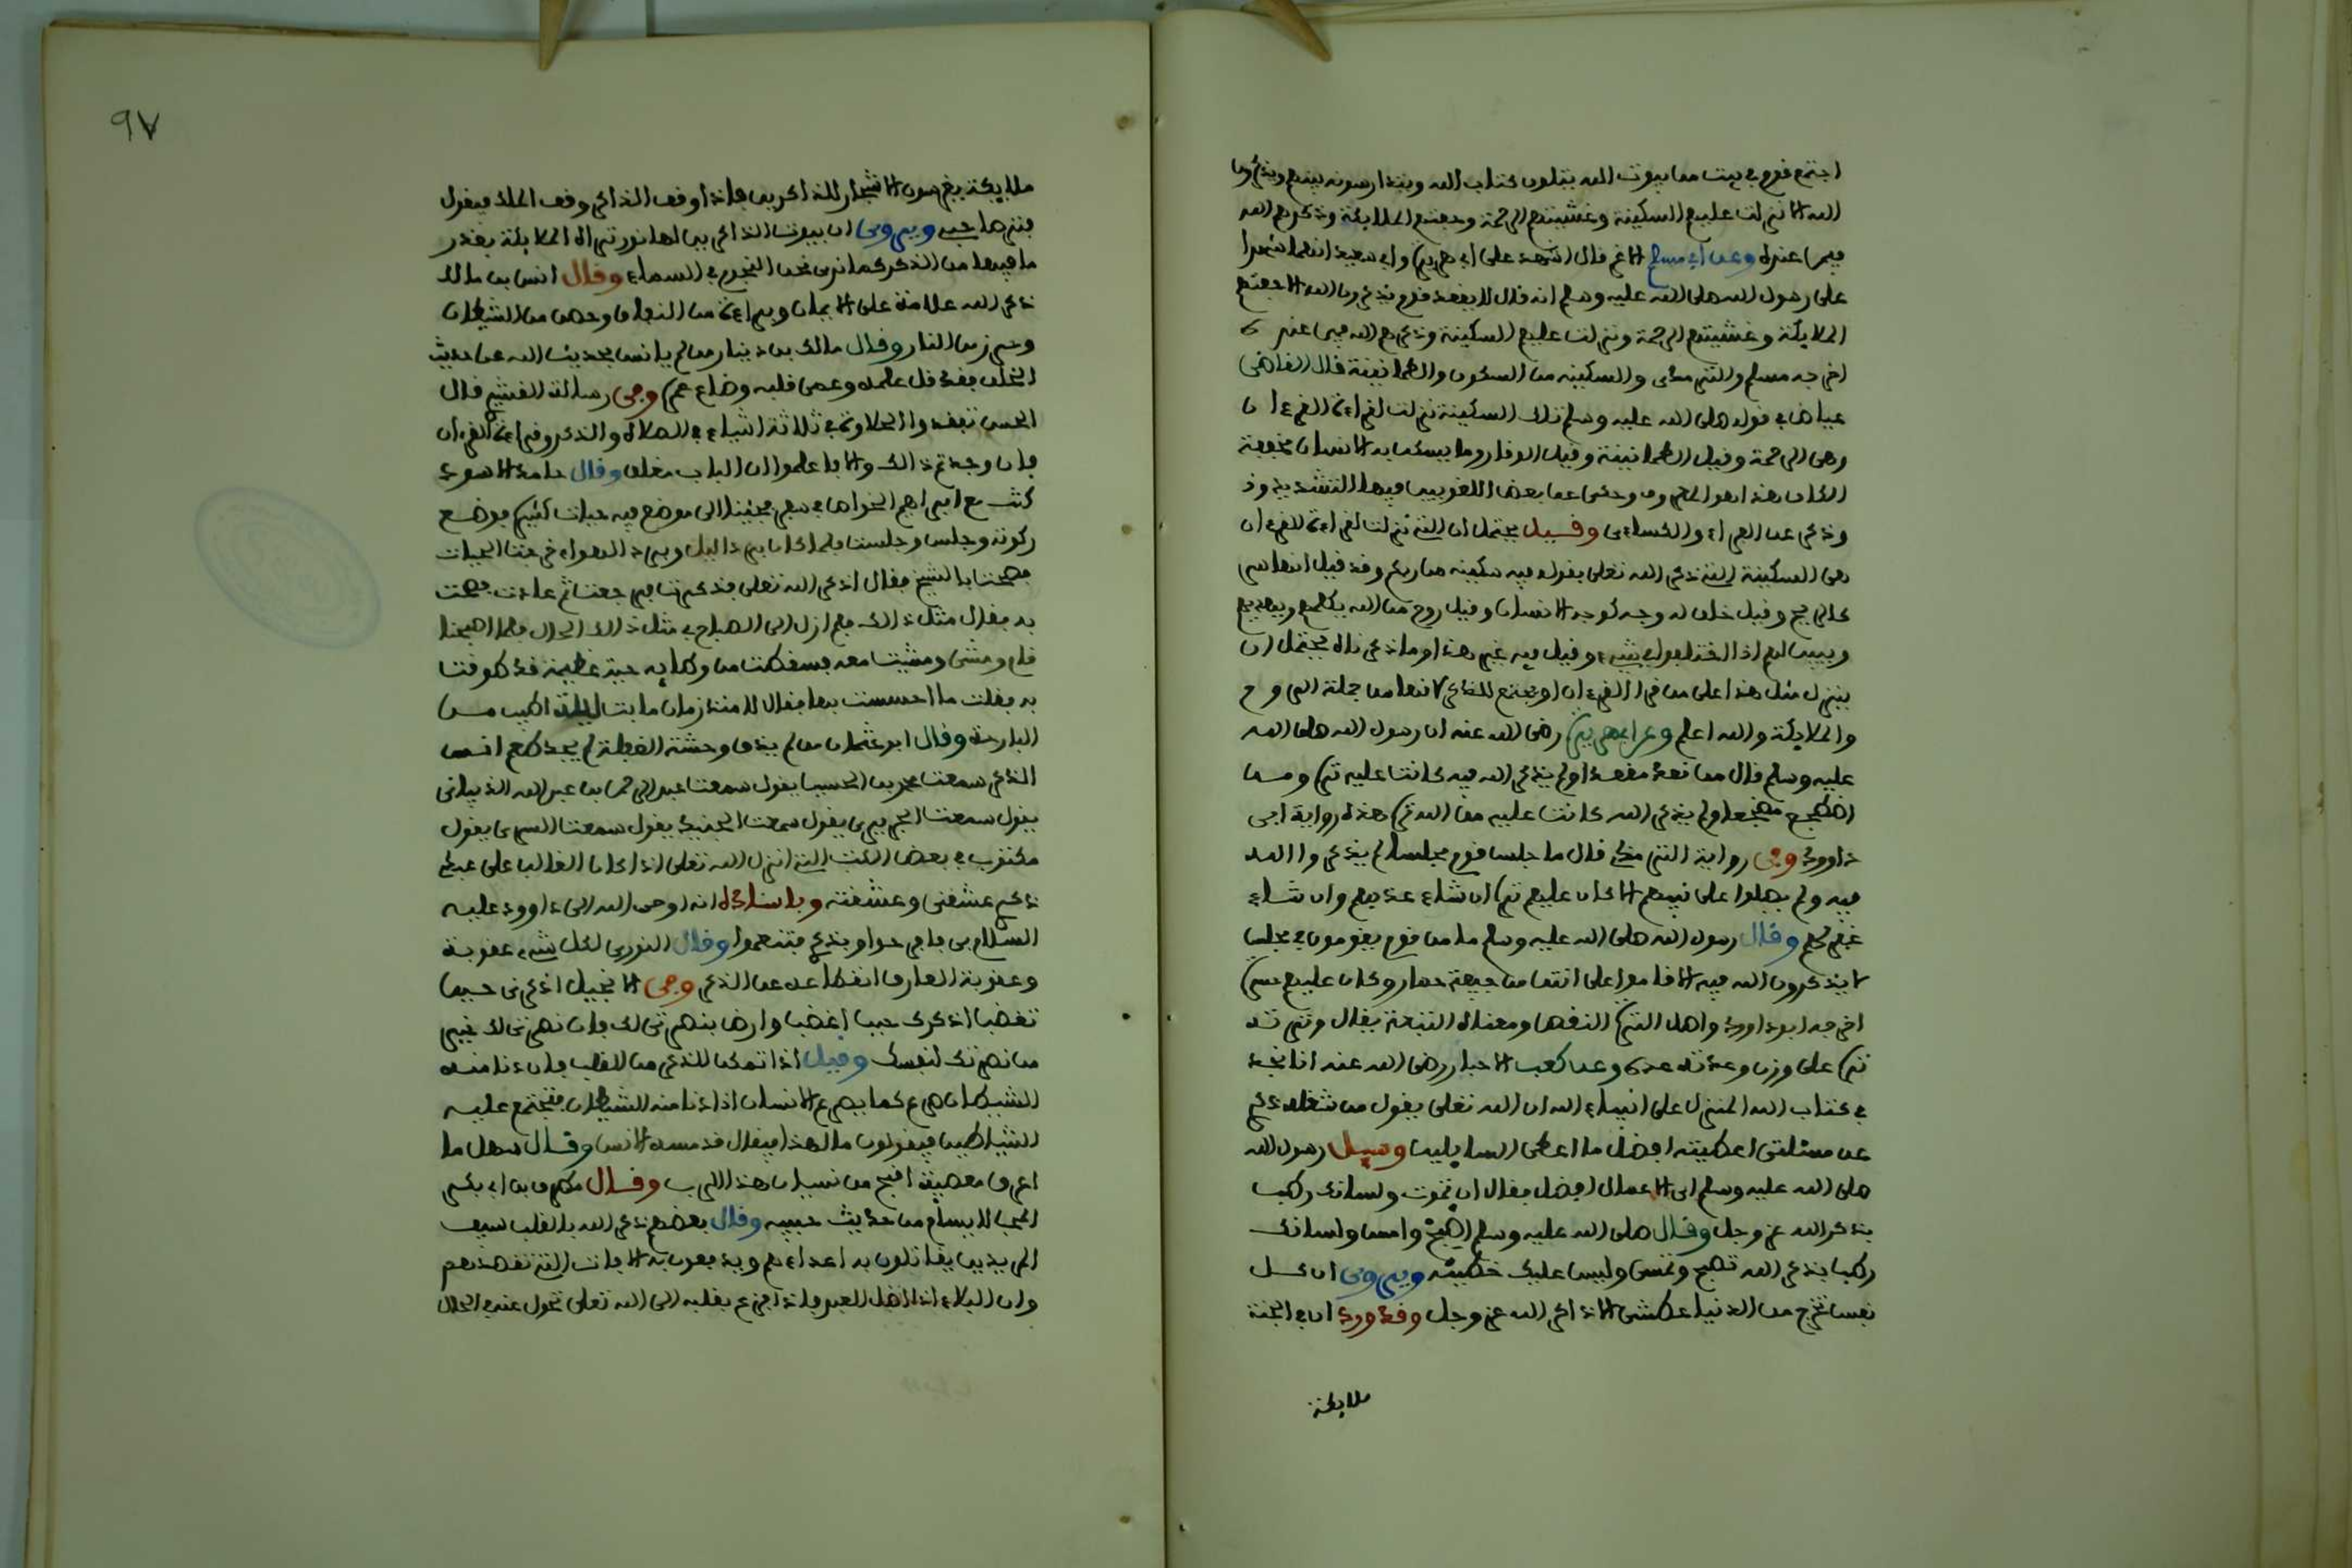 اجتمع قوم في بيت من بيوت الله يتلون كتاب الله ويتدارسونه بينهم ويذكرون
الله الا نزلت عليهم السكينة وغشيتهم الرحمة وحفتهم الملايكة وذكرهم الله
فيمن عنده وعن ابي مسلم الاغر قال اشهد على ابي هريرة وابي سعيد انهما شهدا
على رسول الله صلى الله عليه وسلم انه قال لا يقعد قوم يذكرون الله الا حفتهم
الملايكة وغشيتهم الرحمة ونزلت عليهم السكينة وذكرهم الله فيمن عنده
اخرجه مسلم والترمذي والسكينة من السكون والطمانينة قال القاضي
عياض في قوله صلى الله عليه وسلم تلك السكينة نزلت لقراءة القرءان
وهي الرحمة وقيل الطمانينة وقيل الوقار وما يسكن به الانسان مخففة
الكاف هذا هو المعروف وحكى عن بعض اللغويين فيها التشديد وذ
وذكر عن الفراء والكسائي وقيل يحتمل ان التي نزلت لقراءة القرءان
هي السكينة التي ذكر الله تعلى بقوله فيه سكينة من ربكم وقد قيل انها شي
كالريح وقيل خلق له وجه كوجه الانسان وقيل روح من الله يكلمهم ويهديهم
ويبين لهم اذا اختلفوا في شيء وقيل فيه غير هذا وما ذكرناه يحتمل ان
ينزل مثل هذا على من قرا القرءان او يجتمع للذكر لانها من جملة الروح
والملايكة والله اعلم وعن ابي هريرة رضي الله عنه ان رسول الله صلى الله
عليه وسلم قال من قعد مقعدا ولم يذكر الله فيه كانت عليه ترة ومن
اضطجع مضجعا ولم يذكر الله كانت عليه من الله ترة هذه رواية ابي
داوود وفي رواية الترمذي قال ما جلس قوم مجلسا لم يذكروا الله
فيه ولم يصلوا على نبيهم الا كان عليهم ترة ان شاء عذبهم وان شاء
غفر لهم وقال رسول الله صلى الله عليه وسلم ما من قوم يقومون في مجلس
لا يذكرون الله فيه الا قاموا على انتن من جيفة حمار وكان عليهم حسرة
اخرجه ابو داوود واهل الترة النقص ومعناه التبعة يقال وترته
ترة على وزن وعدته عدة وعن كعب الاحبار رضي الله عنه انا نجد
في كتاب الله المنزل على انبياء الله ان الله تعلى يقول من شغله ذكري
عن مسئلتي اعطيته افضل ما اعطي السايلين وسيل رسول الله
صلى الله عليه وسلم اي الاعمال افضل فقال ان تموت ولسانك رطب
بذكر الله عز وجل وقال صلى الله عليه وسلم اصبح وامس ولسانك
رطب بذكر الله تصبح وتمسي وليس عليك خطيئة ويروى ان كل
نفس تخرج من الدنيا عطشى الا ذاكر الله عز وجل وقد ورد ان في الجنة
ملايكة
٩٧
ملايكة يغرسون الاشجار للذاكرين فاذا وقف الذاكر وقف الملك فيقول
فتر صاحبي ويروى ان بيوت الذاكرين لها نور تراه الملايكة بقدر
ما فيها من الذكر كما نرى نحن النجوم في السماء وقال انس بن مالك
ذكر الله علامة على الايمان وبراءة من النفاق وحصن من الشيطان
وحرز من النار وقال مالك بن دينار من لم يانس بحديث الله عن حديث
الخلق فقد قل علمه وعمي قلبه وضاع عمره وفي رسالة القشيري قال
الحسن تفقدوا الحلاوة في ثلاثة اشياء في الصلاة والذكر وقراءة القرءان
فان وجدتم ذالك والا فاعلموا ان الباب مغلق وقال حامد الاسود
كنت مع ابراهيم الخواص في سفر فجئنا الى موضع فيه حيات كثيرة فوضع
ركوته وجلس وجلست فلما كان برد اليل وبرد الهواء خرجت الحيات
فصحت بالشيخ فقال اذكر الله تعلى فذكرت فرجعت ثم عادت فصحت
به فقال مثل ذالك فلم ازل الى الصباح في مثل ذالك الحال فلما اصبحنا
قام ومشى ومشيت معه فسقطت من وطايه حية عظيمة قد طوقت
به فقلت ما احسست بها فقال لا منذ زمان ما بت ليلة اطيب من
البارحة وقال ابو عثمان من لم يذق وحشة الغفلة لم يجد طعم انس
الذكر سمعت محمد بن الحسين يقول سمعت عبد الرحمن بن عبد الله الذبياني
يقول سمعت الجريري يقول سمعت الجنيد يقول سمعت السري يقول
مكتوب في بعض الكتب التي انزل الله تعلى اذا كان الغالب على عبدي
ذكري عشقني وعشقته وباسناده انه اوحى الله الى داوود عليه
السلام بي فافرحوا وبذكري فتنعموا وقال النوري لكل شيء عقوبة
وعقوبة العارف انقطاعه عن الذكر وفي الانجيل اذكرني حين
تغضب اذكرك حين اغضب وارض بنصرتي لك فان نصرتي لك خير
من نصرتك لنفسك وقيل اذا تمكن الذكر من القلب فان دنا منه
الشيطان صرع كما يصرع الانسان اذا دنا منه الشيطان فتجتمع عليه
الشياطين فيقولون ما لهذا فيقال قد مسه الانس وقال سهل ما
اعرف معصية اقبح من نسيان هذا الرب وقال مطرف بن ابي بكر
المحب لا يسام من حديث حبيبه وقال بعضهم ذكر الله بالقلب سيف
المريدين يقاتلون به اعداءهم ويدفعون به الافات التي تقصدهم
وان البلاء اذا اظل العبد فاذا فزع بقلبه الى الله تعلى تحول عنه في الحال